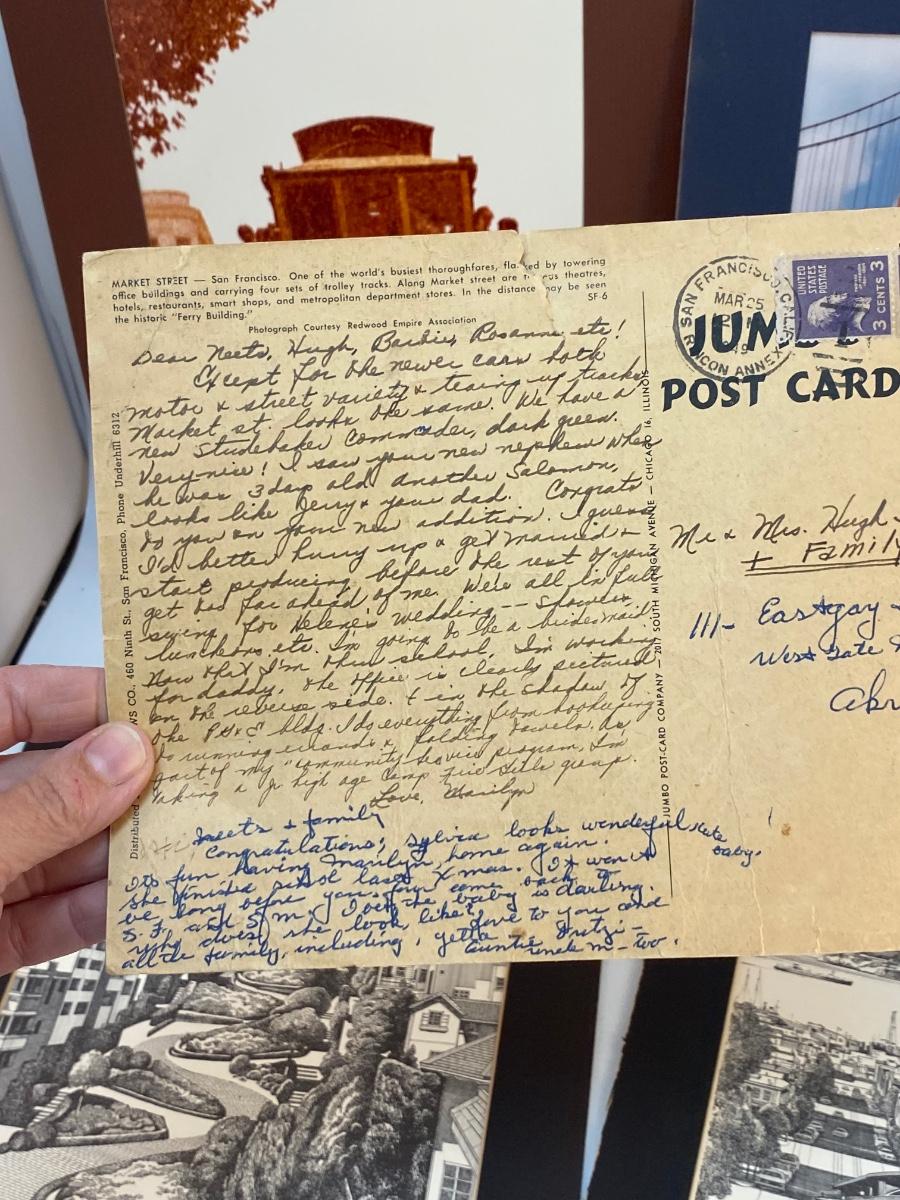 MARKET STREET — San Francisco. One of the world's busiest thoroughfares, flanked by towering
office buildings and carrying four sets of trolley tracks. Along Market street are theatres,
hotels, restaurants, smart shops, and metropolitan department stores. In the distance may be seen
the historic "Ferry Building."
SF-6
Photograph Courtesy Redwood Empire Association
Dear Neets, Hugh, Barbie, Rosanne etc!
Except for the newer cars both
motor & street variety & tearing up tracks
Market st. looks the same. We have a
new Studebaker Commander, dark green.
Very nice! I saw your new nephew when
he was 3 days old. Another Salomon,
looks like Jerry & your dad. Congrats
to you on your new addition. I guess
I'd better hurry up & get married &
start producing before the rest of you
get too far ahead of me. We're all in full
swing for Helene's wedding -- showers
luncheons, etc. I'm going to be a bridesmaid
Now that I'm thru school, I'm working
for daddy. The office is clearly pictured
on the reverse side. & in the shadow of
the P.G.&E bldg. I do everything from bookkeeping
to running errands & folding towels. As
part of my "community service program, I'm
taking a Jr high age Camp Fire Girls group.
Love, Marilyn
Neets & family
Congratulations; Sylvia looks wonderful
baby.
Its fun having Marilyn home again.
She finished school last Xmas. It won't
be long before you'll come back to
S.F. and S.M. I bet the baby is darling.
Who does she look like?
Love to you and
all the family, including,
Auntie Fritzi-
uncle m- too.
Distributed WS CO., 460 Ninth St., San Francisco, Phone Underhill 6312
JUMBO POST-CARD COMPANY — 2017 SOUTH MICHIGAN AVENUE — CHICAGO 16, ILLINOIS
SAN FRANCISCO, CALIF.
MAR 25
RINCON ANNEX
UNITED STATES POSTAGE
3 CENTS 3
JUM
POST CARD
Mr & Mrs. Hugh
+ Family
111- Eastgay
West Gate
Akr